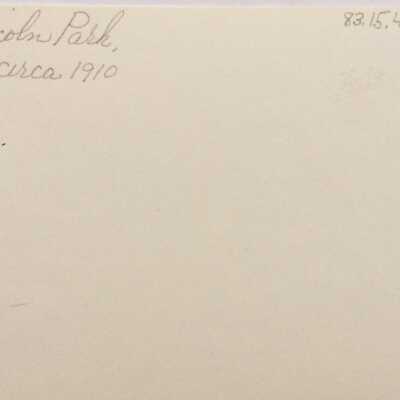 coln Park,
circa 1910
83.15.4